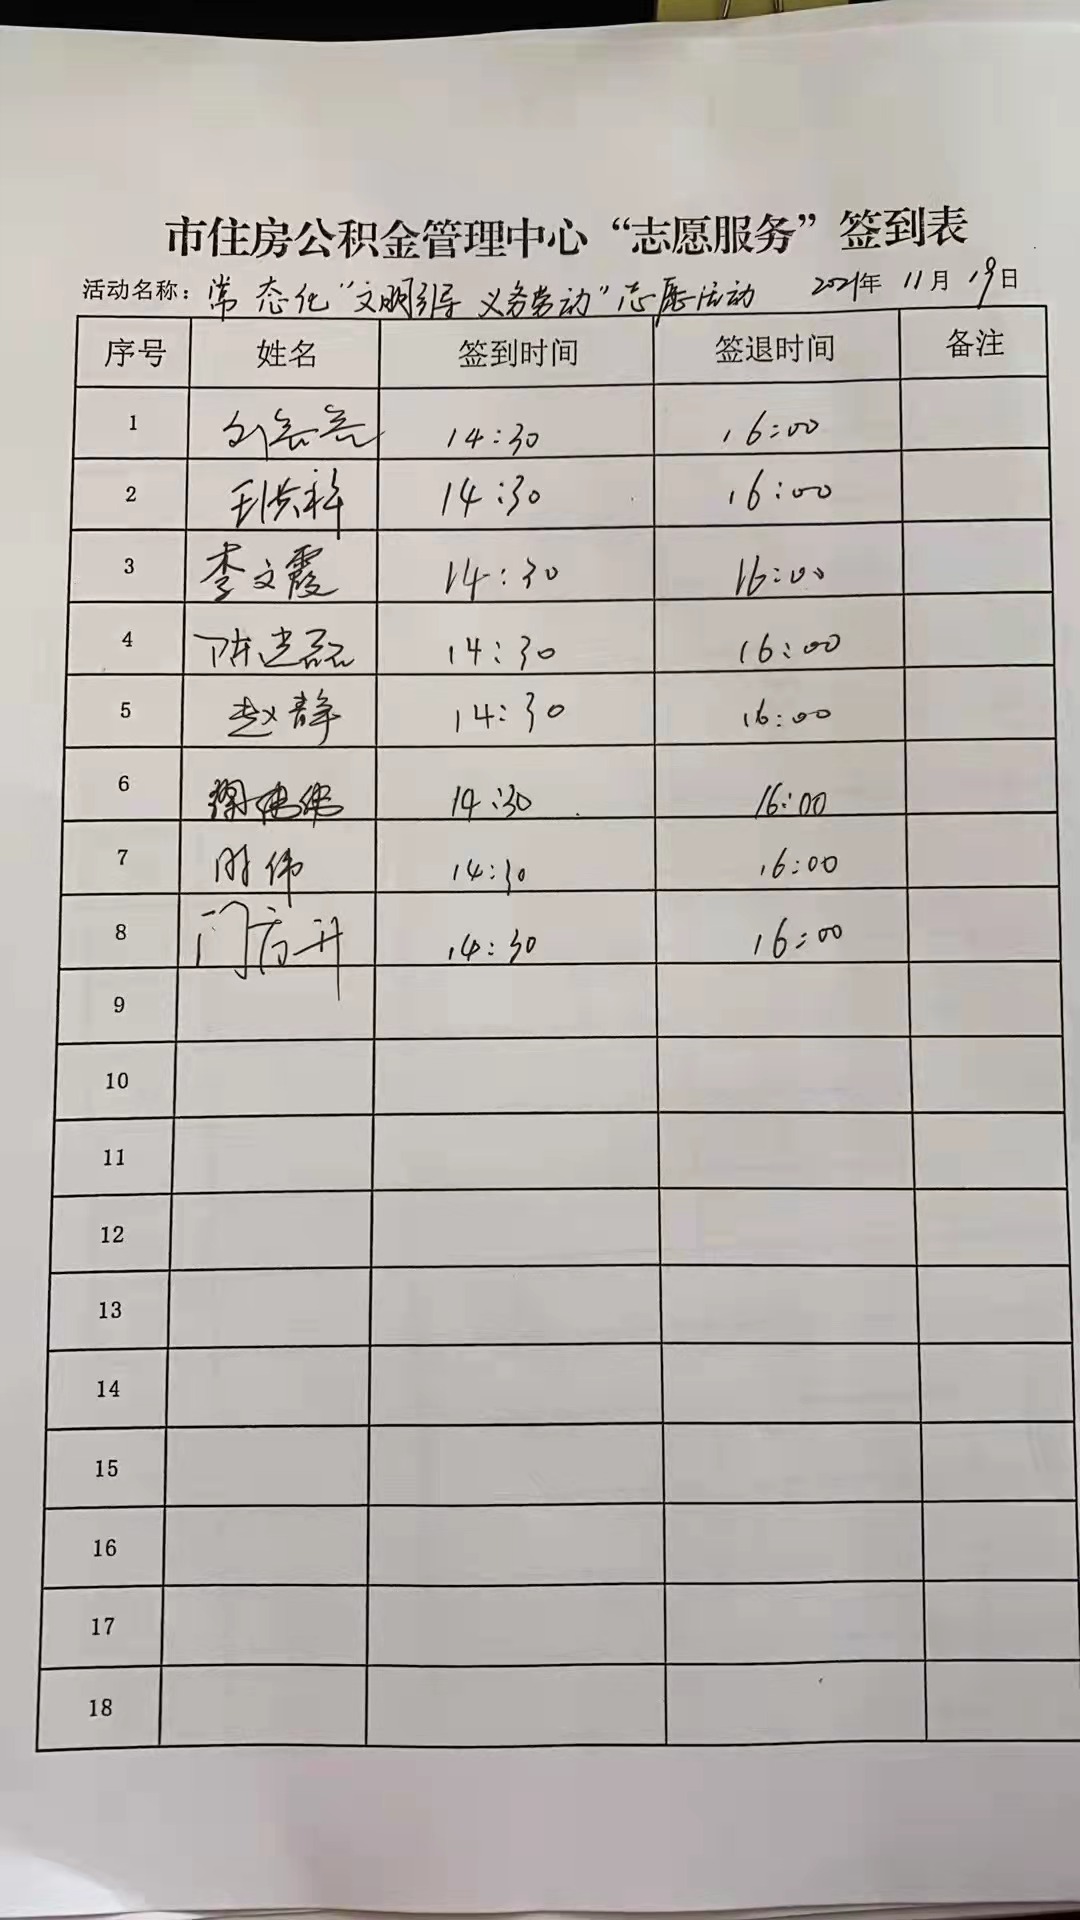 市住房公积金管理中心“志愿服务”签到表
活动名称：常态化“文明引导 义务劳动”志愿活动 2021年 11月 19日
序号 姓名 签到时间 签退时间 备注
1 14:30 16:00
2 14:30 16:00
3 李文霞 14:30 16:00
4 14:30 16:00
5 赵静 14:30 16:00
6 14:30 16:00
7 时伟 14:30 16:00
8 14:30 16:00
9
10
11
12
13
14
15
16
17
18